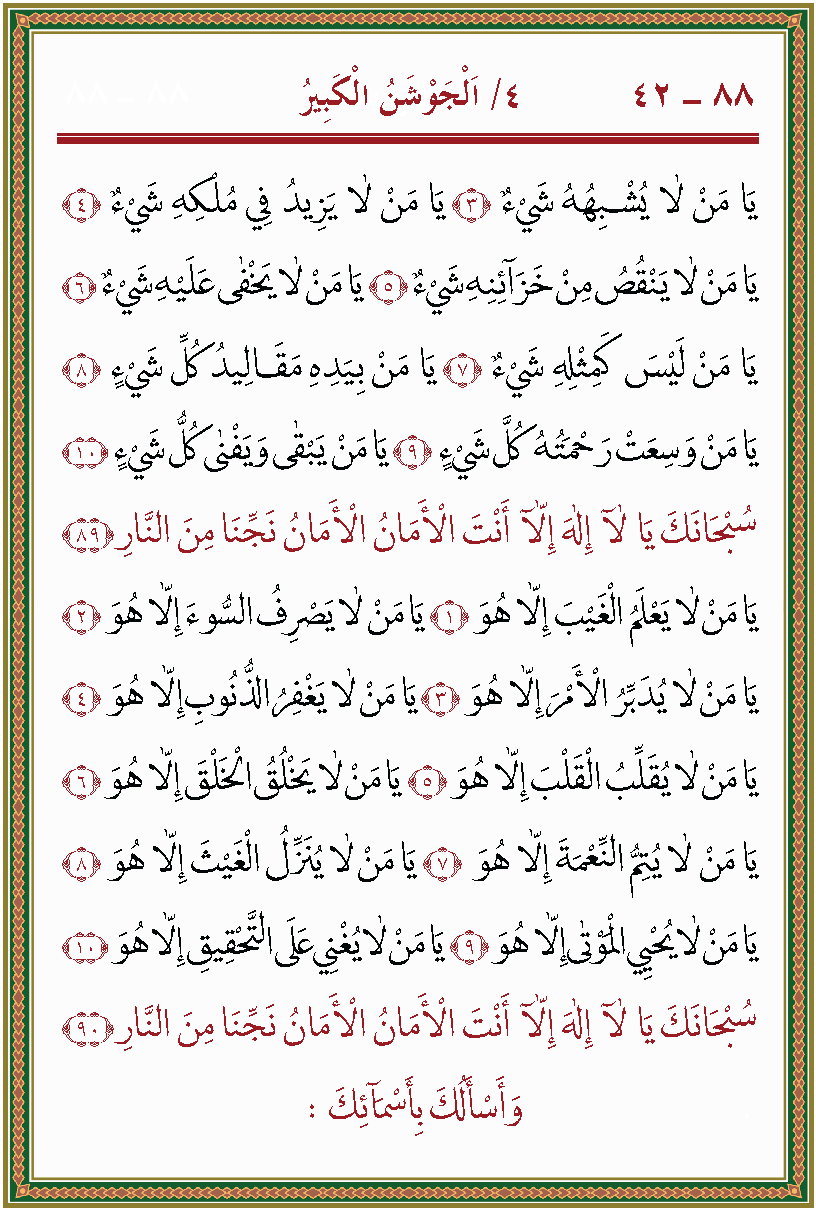 ٨٨ ــ ٤٢ ٤/ اَلْجَوْشَنُ الْكَبِيرُ ٨٨ ــ ٨٨
يَا مَنْ لَا يُشْبِهُهُ شَيْءٌ ﴿٣﴾ يَا مَنْ لَا يَزِيدُ فِي مُلْكِهِ شَيْءٌ ﴿٤﴾
يَا مَنْ لَا يَنْقُصُ مِنْ خَزَآئِنِهِ شَيْءٌ ﴿٥﴾ يَا مَنْ لَا يَخْفٰى عَلَيْهِ شَيْءٌ ﴿٦﴾
يَا مَنْ لَيْسَ كَمِثْلِهِ شَيْءٌ ﴿٧﴾ يَا مَنْ بِيَدِهِ مَقَالِيدُ كُلِّ شَيْءٍ ﴿٨﴾
يَا مَنْ وَسِعَتْ رَحْمَتُهُ كُلَّ شَيْءٍ ﴿٩﴾ يَا مَنْ يَبْقٰى وَيَفْنٰى كُلُّ شَيْءٍ ﴿١٠﴾
سُبْحَانَكَ يَا لَآ إِلٰهَ إِلَّآ أَنْتَ الْأَمَانُ الْأَمَانُ نَجِّنَا مِنَ النَّارِ ﴿٨٩﴾
يَا مَنْ لَا يَعْلَمُ الْغَيْبَ إِلَّا هُوَ ﴿١﴾ يَا مَنْ لَا يَصْرِفُ السُّوءَ إِلَّا هُوَ ﴿٢﴾
يَا مَنْ لَا يُدَبِّرُ الْأَمْرَ إِلَّا هُوَ ﴿٣﴾ يَا مَنْ لَا يَغْفِرُ الذُّنُوبِ إِلَّا هُوَ ﴿٤﴾
يَا مَنْ لَا يُقَلِّبُ الْقَلْبَ إِلَّا هُوَ ﴿٥﴾ يَا مَنْ لَا يَخْلُقُ الْخَلْقَ إِلَّا هُوَ ﴿٦﴾
يَا مَنْ لَا يُتِمُّ النِّعْمَةَ إِلَّا هُوَ ﴿٧﴾ يَا مَنْ لَا يُنَزِّلُ الْغَيْثَ إِلَّا هُوَ ﴿٨﴾
يَا مَنْ لَا يُحْيِي الْمَوْتٰى إِلَّا هُوَ ﴿٩﴾ يَا مَنْ لَا يُغْنِي عَلَى التَّحْقِيقِ إِلَّا هُوَ ﴿١٠﴾
سُبْحَانَكَ يَا لَآ إِلٰهَ إِلَّآ أَنْتَ الْأَمَانُ الْأَمَانُ نَجِّنَا مِنَ النَّارِ ﴿٩٠﴾
وَأَسْأَلُكَ بِأَسْمَآئِكَ :